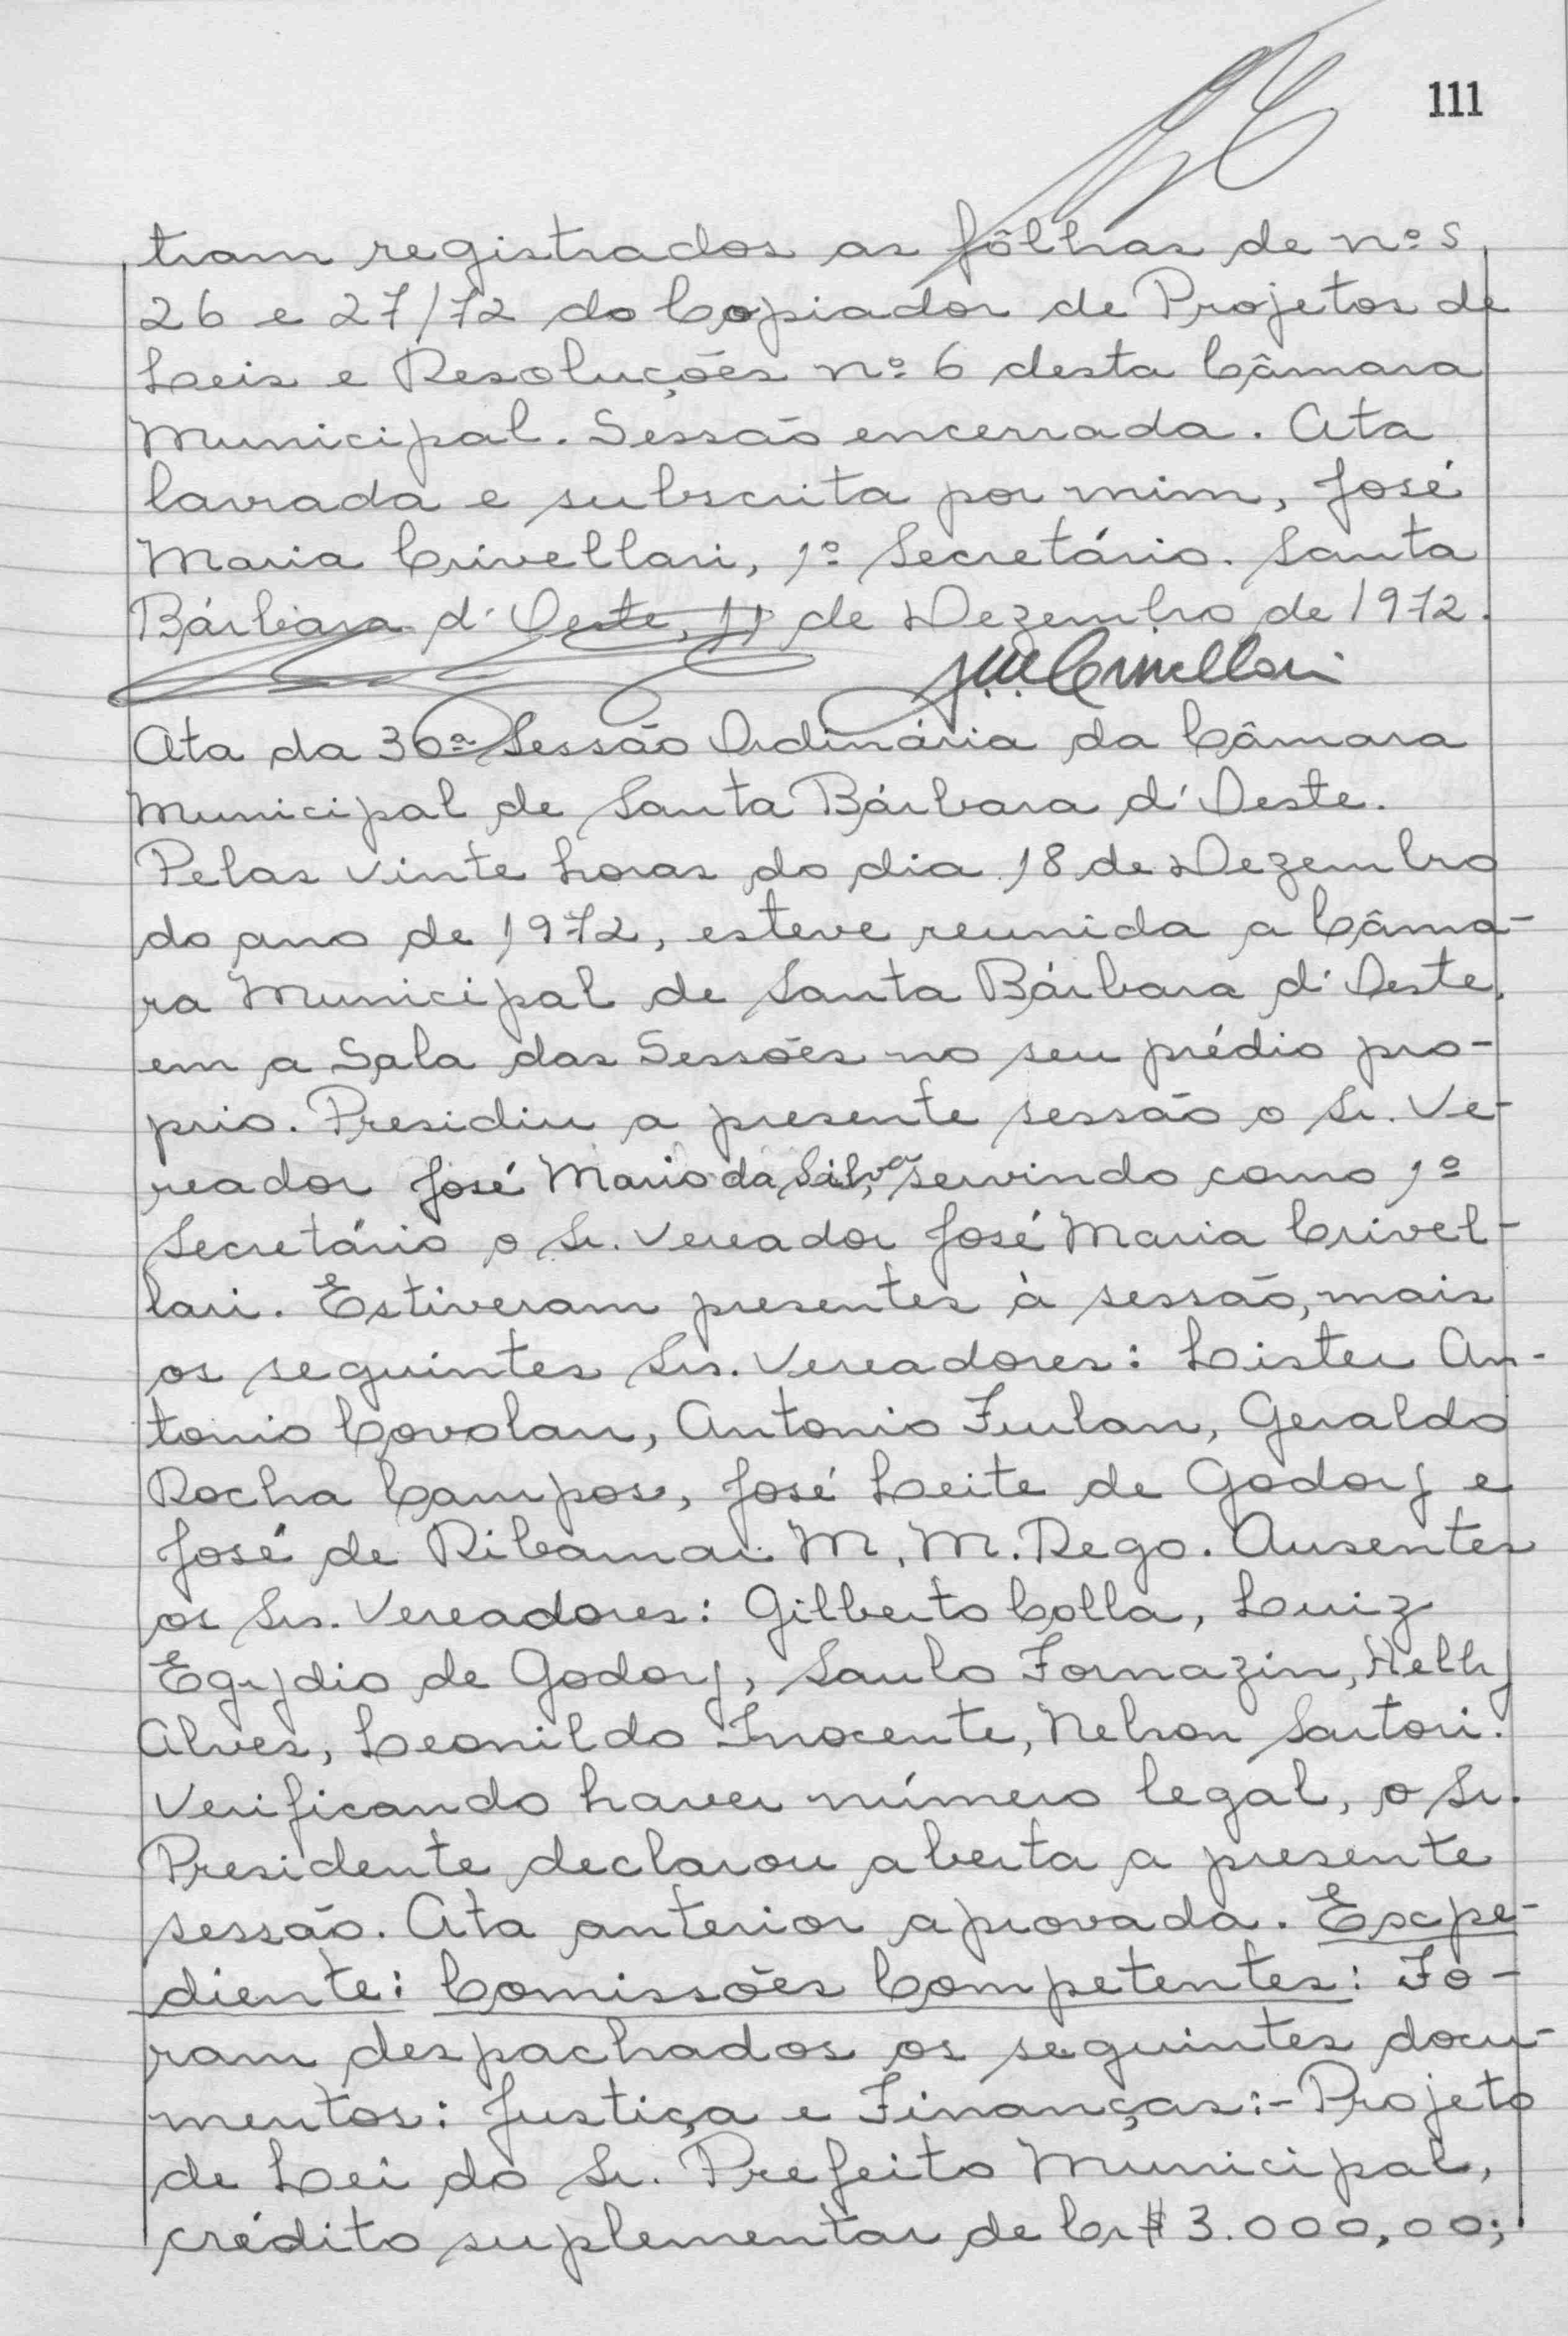 111
tram registrados as fôlhas de nºs
26 e 27/72 do Copiador de Projetos de
Leis e Resoluções nº 6 desta Câmara
Municipal. Sessão encerrada. Ata
lavrada e subscrita por mim, José
Maria Crivellari, 1º Secretário. Santa
Bárbara d'Oeste, 11 de Dezembro de 1972.
J.M. Crivellari
Ata da 36ª Sessão Ordinária da Câmara
Municipal de Santa Bárbara d'Oeste.
Pelas vinte horas do dia 18 de Dezembro
do ano de 1972, esteve reunida a Câma-
ra Municipal de Santa Bárbara d'Oeste,
em a Sala das Sessões no seu prédio pro-
prio. Presidiu a presente sessão o Sr. Ve-
reador José Mario da Silva, servindo como 1º
Secretário o Sr. Vereador José Maria Crivel-
lari. Estiveram presentes à sessão, mais
os seguintes Srs. Vereadores: Lister An-
tonio Covolan, Antonio Furlan, Geraldo
Rocha Campos, José Leite de Godoy e
José de Ribamar M. M. Rego. Ausentes
os Srs. Vereadores: Gilberto Colla, Luiz
Egydio de Godoy, Saulo Fornazin, Helly
Alves, Leonildo Inocente, Nelson Sartori.
Verificando haver número legal, o Sr.
Presidente declarou aberta a presente
sessão. Ata anterior aprovada. Expe-
diente: Comissões Competentes: Fo-
ram despachados os seguintes docu-
mentos: Justiça e Finanças:- Projeto
de Lei do Sr. Prefeito Municipal,
crédito suplementar de Cr$ 3.000,00;